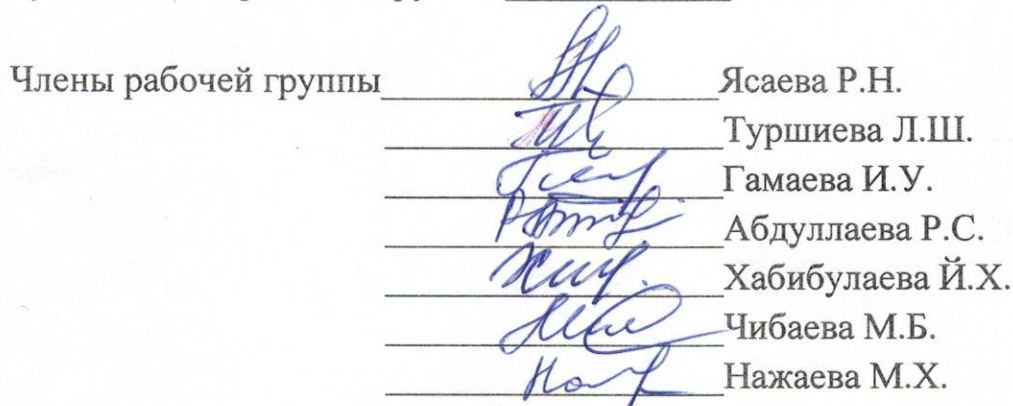 Члены рабочей группы Ясаева Р.Н.
Туршиева Л.Ш.
Гамаева И.У.
Абдуллаева Р.С.
Хабибулаева Й.Х.
Чибаева М.Б.
Нажаева М.Х.